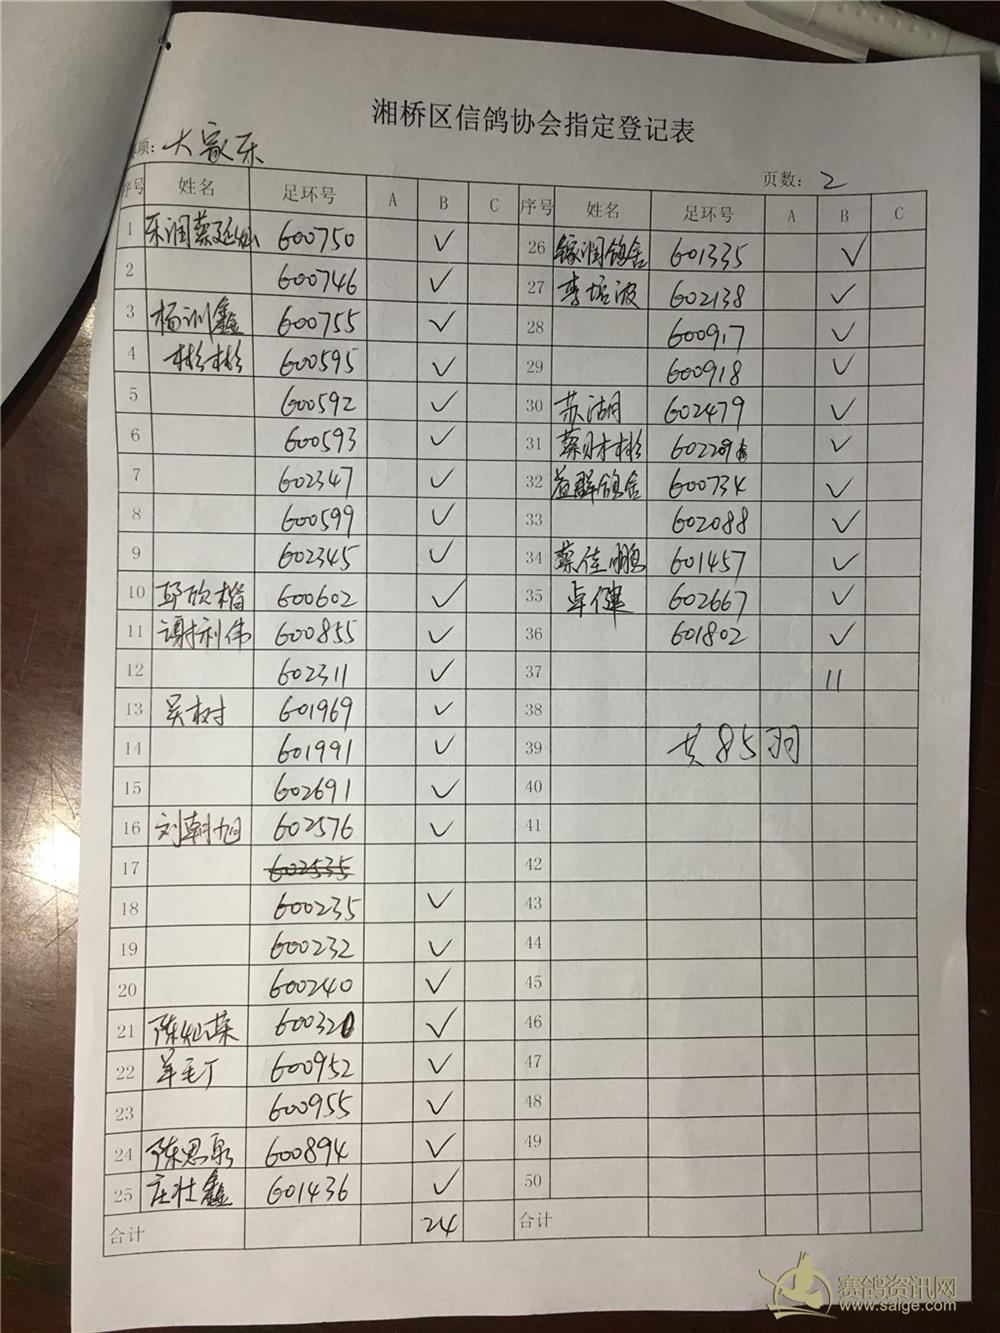 湘桥区信鸽协会指定登记表
项: 大家乐
页数: 2
序号 姓名 足环号 A B C 序号 姓名 足环号 A B C
1 乐润蔡廷灿 600750 ✓
2 600746 ✓
3 杨训鑫 600755 ✓
4 彬彬 600595 ✓
5 600592 ✓
6 600593 ✓
7 602347 ✓
8 600599 ✓
9 602345 ✓
10 邱欣楷 600602 ✓
11 谢利伟 600855 ✓
12 602311 ✓
13 吴树 601969 ✓
14 601991 ✓
15 602691 ✓
16 刘朝旭 602576 ✓
17 602535
18 600235 ✓
19 600232 ✓
20 600240 ✓
21 陈灿荣 600320 ✓
22 羊毛丁 600952 ✓
23 600955 ✓
24 陈思 600894 ✓
25 庄壮鑫 601436 ✓
合计 24
26 润鸽舍 601335 ✓
27 李培波 602138 ✓
28 600917 ✓
29 600918 ✓
30 苏湖 602479 ✓
31 蔡彬 ✓
32 益群鸽舍 600734 ✓
33 602088 ✓
34 蔡佳鹏 601457 ✓
35 卓健 602667 ✓
36 601802 ✓
37 11
38
39 共85羽
40
41
42
43
44
45
46
47
48
49
50
合计
赛鸽资讯网
www.saige.com